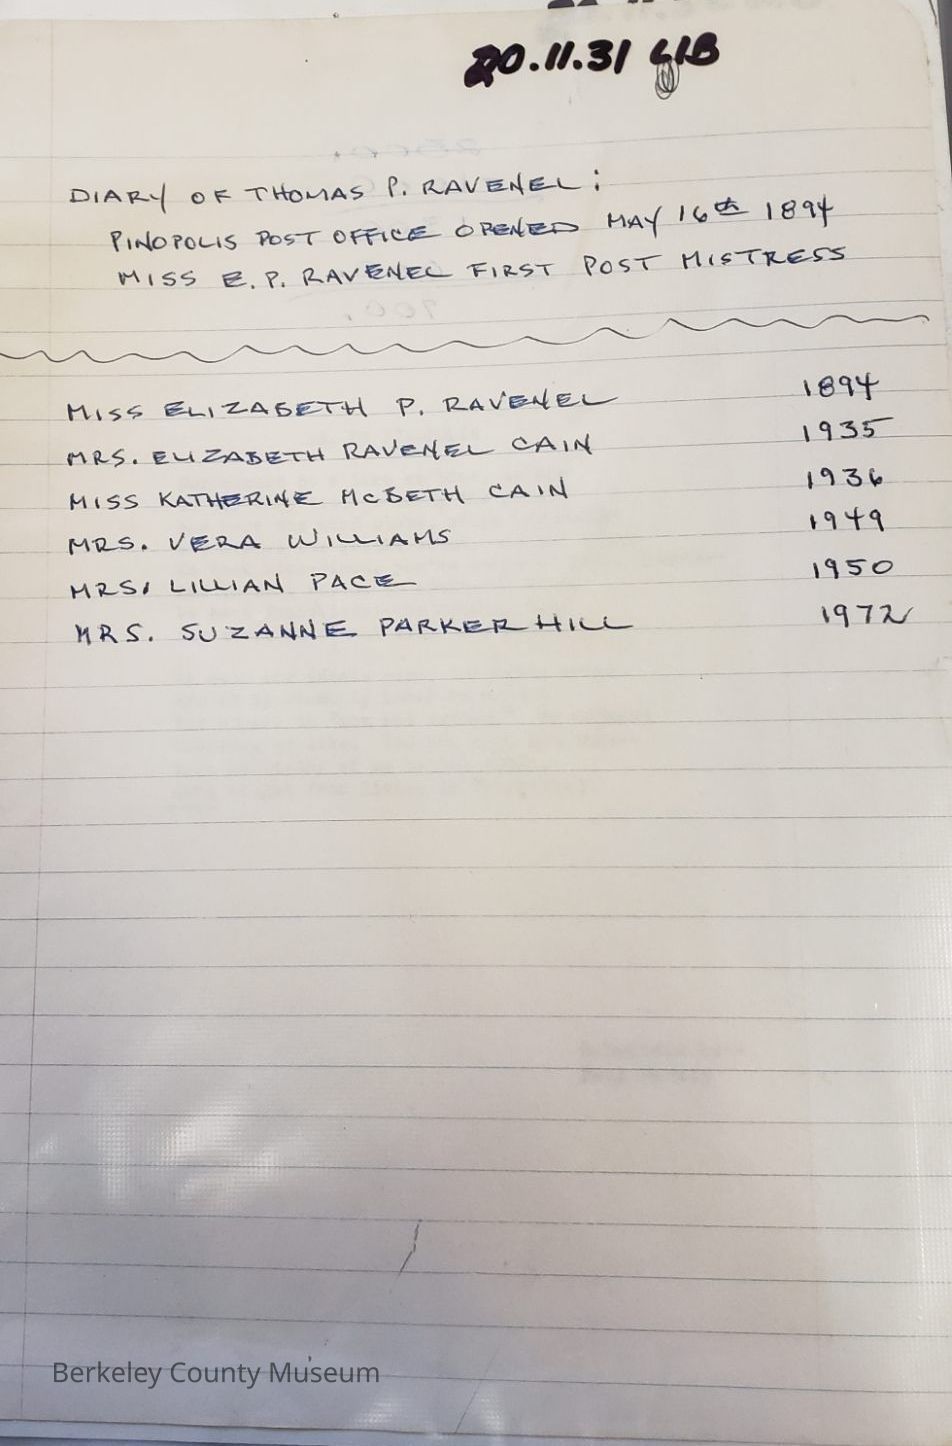 20.11.31 LIB
DIARY OF THOMAS P. RAVENEL:
PINOPOLIS POST OFFICE OPENED MAY 16th 1894
MISS E. P. RAVENEL FIRST POST MISTRESS
MISS ELIZABETH P. RAVENEL 1894
MRS. ELIZABETH RAVENEL CAIN 1935
MISS KATHERINE MCBETH CAIN 1936
MRS. VERA WILLIAMS 1949
MRS. LILLIAN PACE 1950
MRS. SUZANNE PARKER HILL 1972
Berkeley County Museum